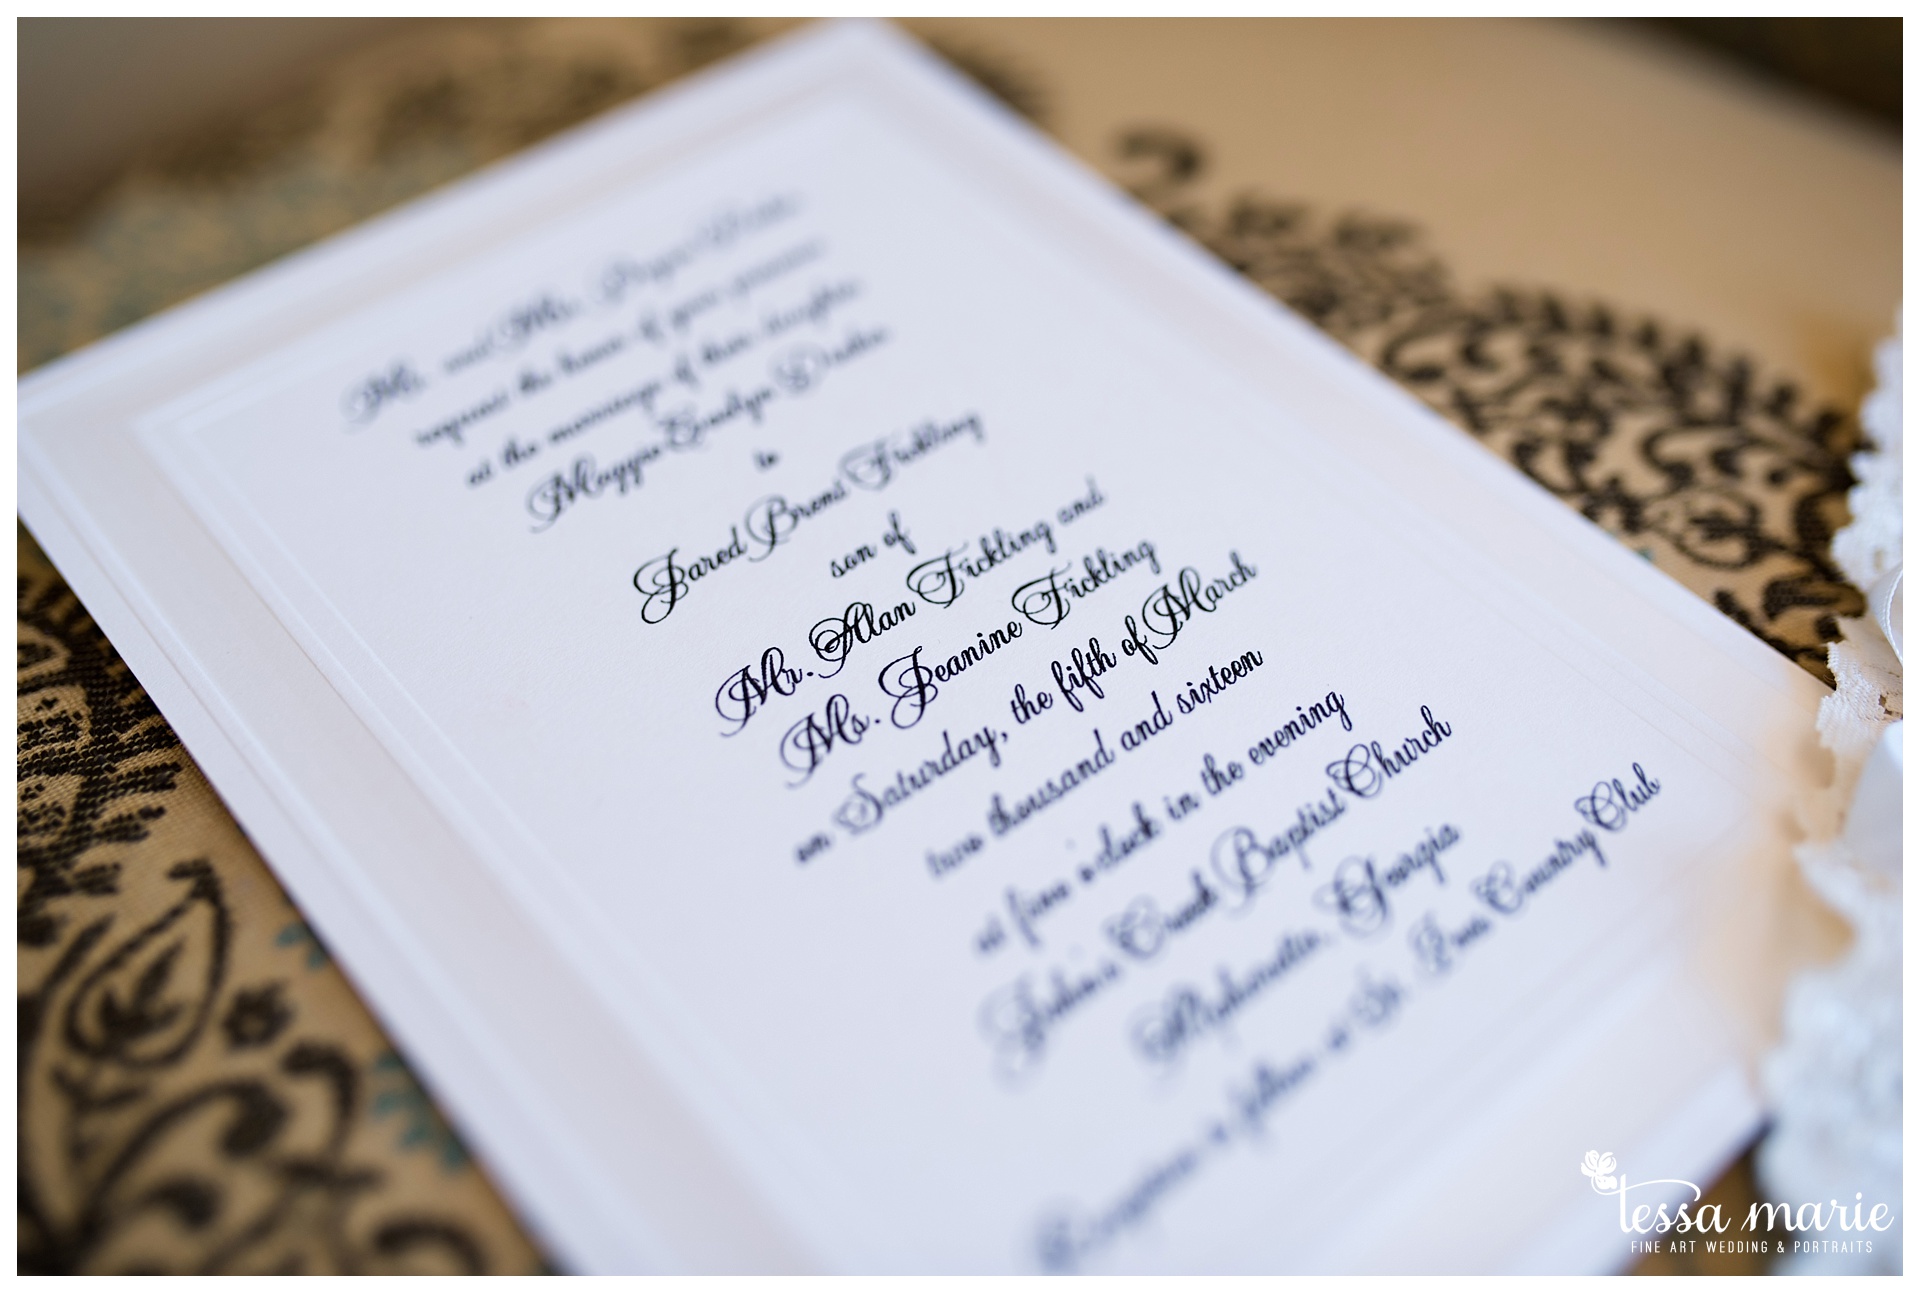 Mr. and Mrs. Roger
request the honor of your presence
at the marriage of their daughter
Maggie Emilyn
to
Jared Brent Fickling
son of
Mr. Alan Fickling and
Ms. Jeanine Fickling
on Saturday, the fifth of March
two thousand and sixteen
at five o'clock in the evening
John's Creek Baptist Church
Alpharetta, Georgia
Reception to follow at St. Ives Country Club
tessa marie
FINE ART WEDDING & PORTRAITS